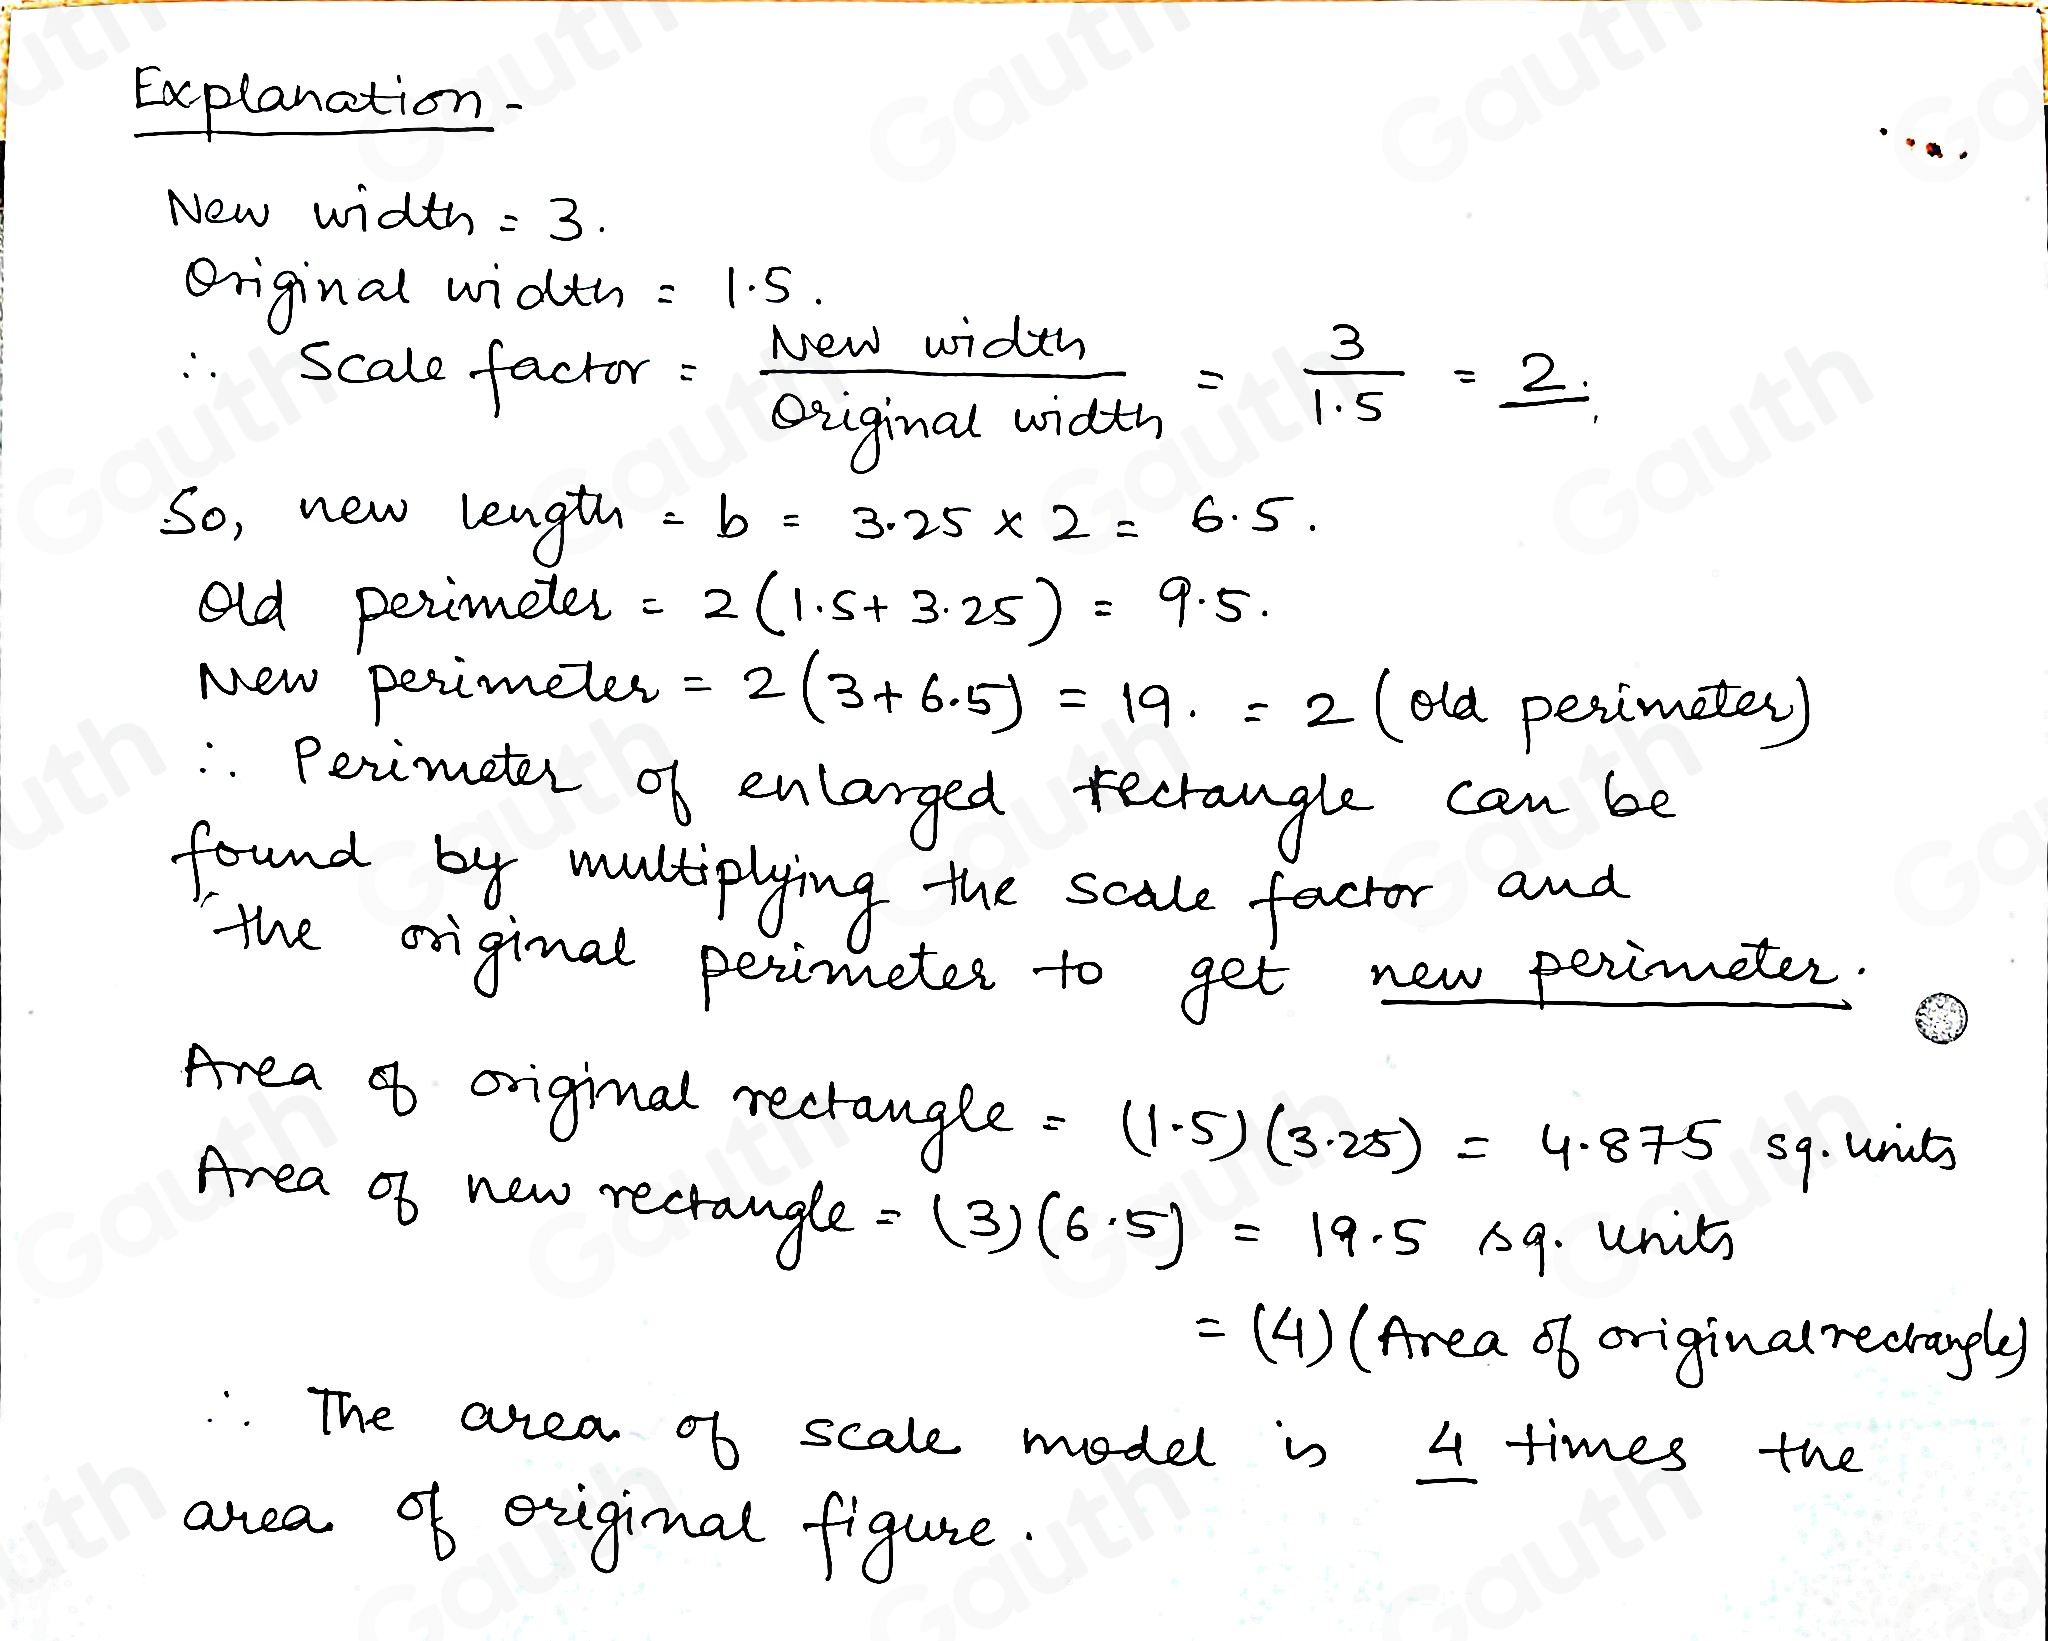 Explanation -
New width = 3.
Original width = 1.5.
∴ Scale factor = New width / Original width = 3 / 1.5 = 2.
So, new length = b = 3.25 × 2 = 6.5.
Old perimeter = 2(1.5 + 3.25) = 9.5.
New perimeter = 2(3 + 6.5) = 19. = 2 (old perimeter)
∴ Perimeter of enlarged rectangle can be
found by multiplying the scale factor and
the original perimeter to get new perimeter.
Area of original rectangle = (1.5)(3.25) = 4.875 sq. units
Area of new rectangle = (3)(6.5) = 19.5 sq. units
= (4)(Area of original rectangle)
∴ The area of scale model is 4 times the
area of original figure.